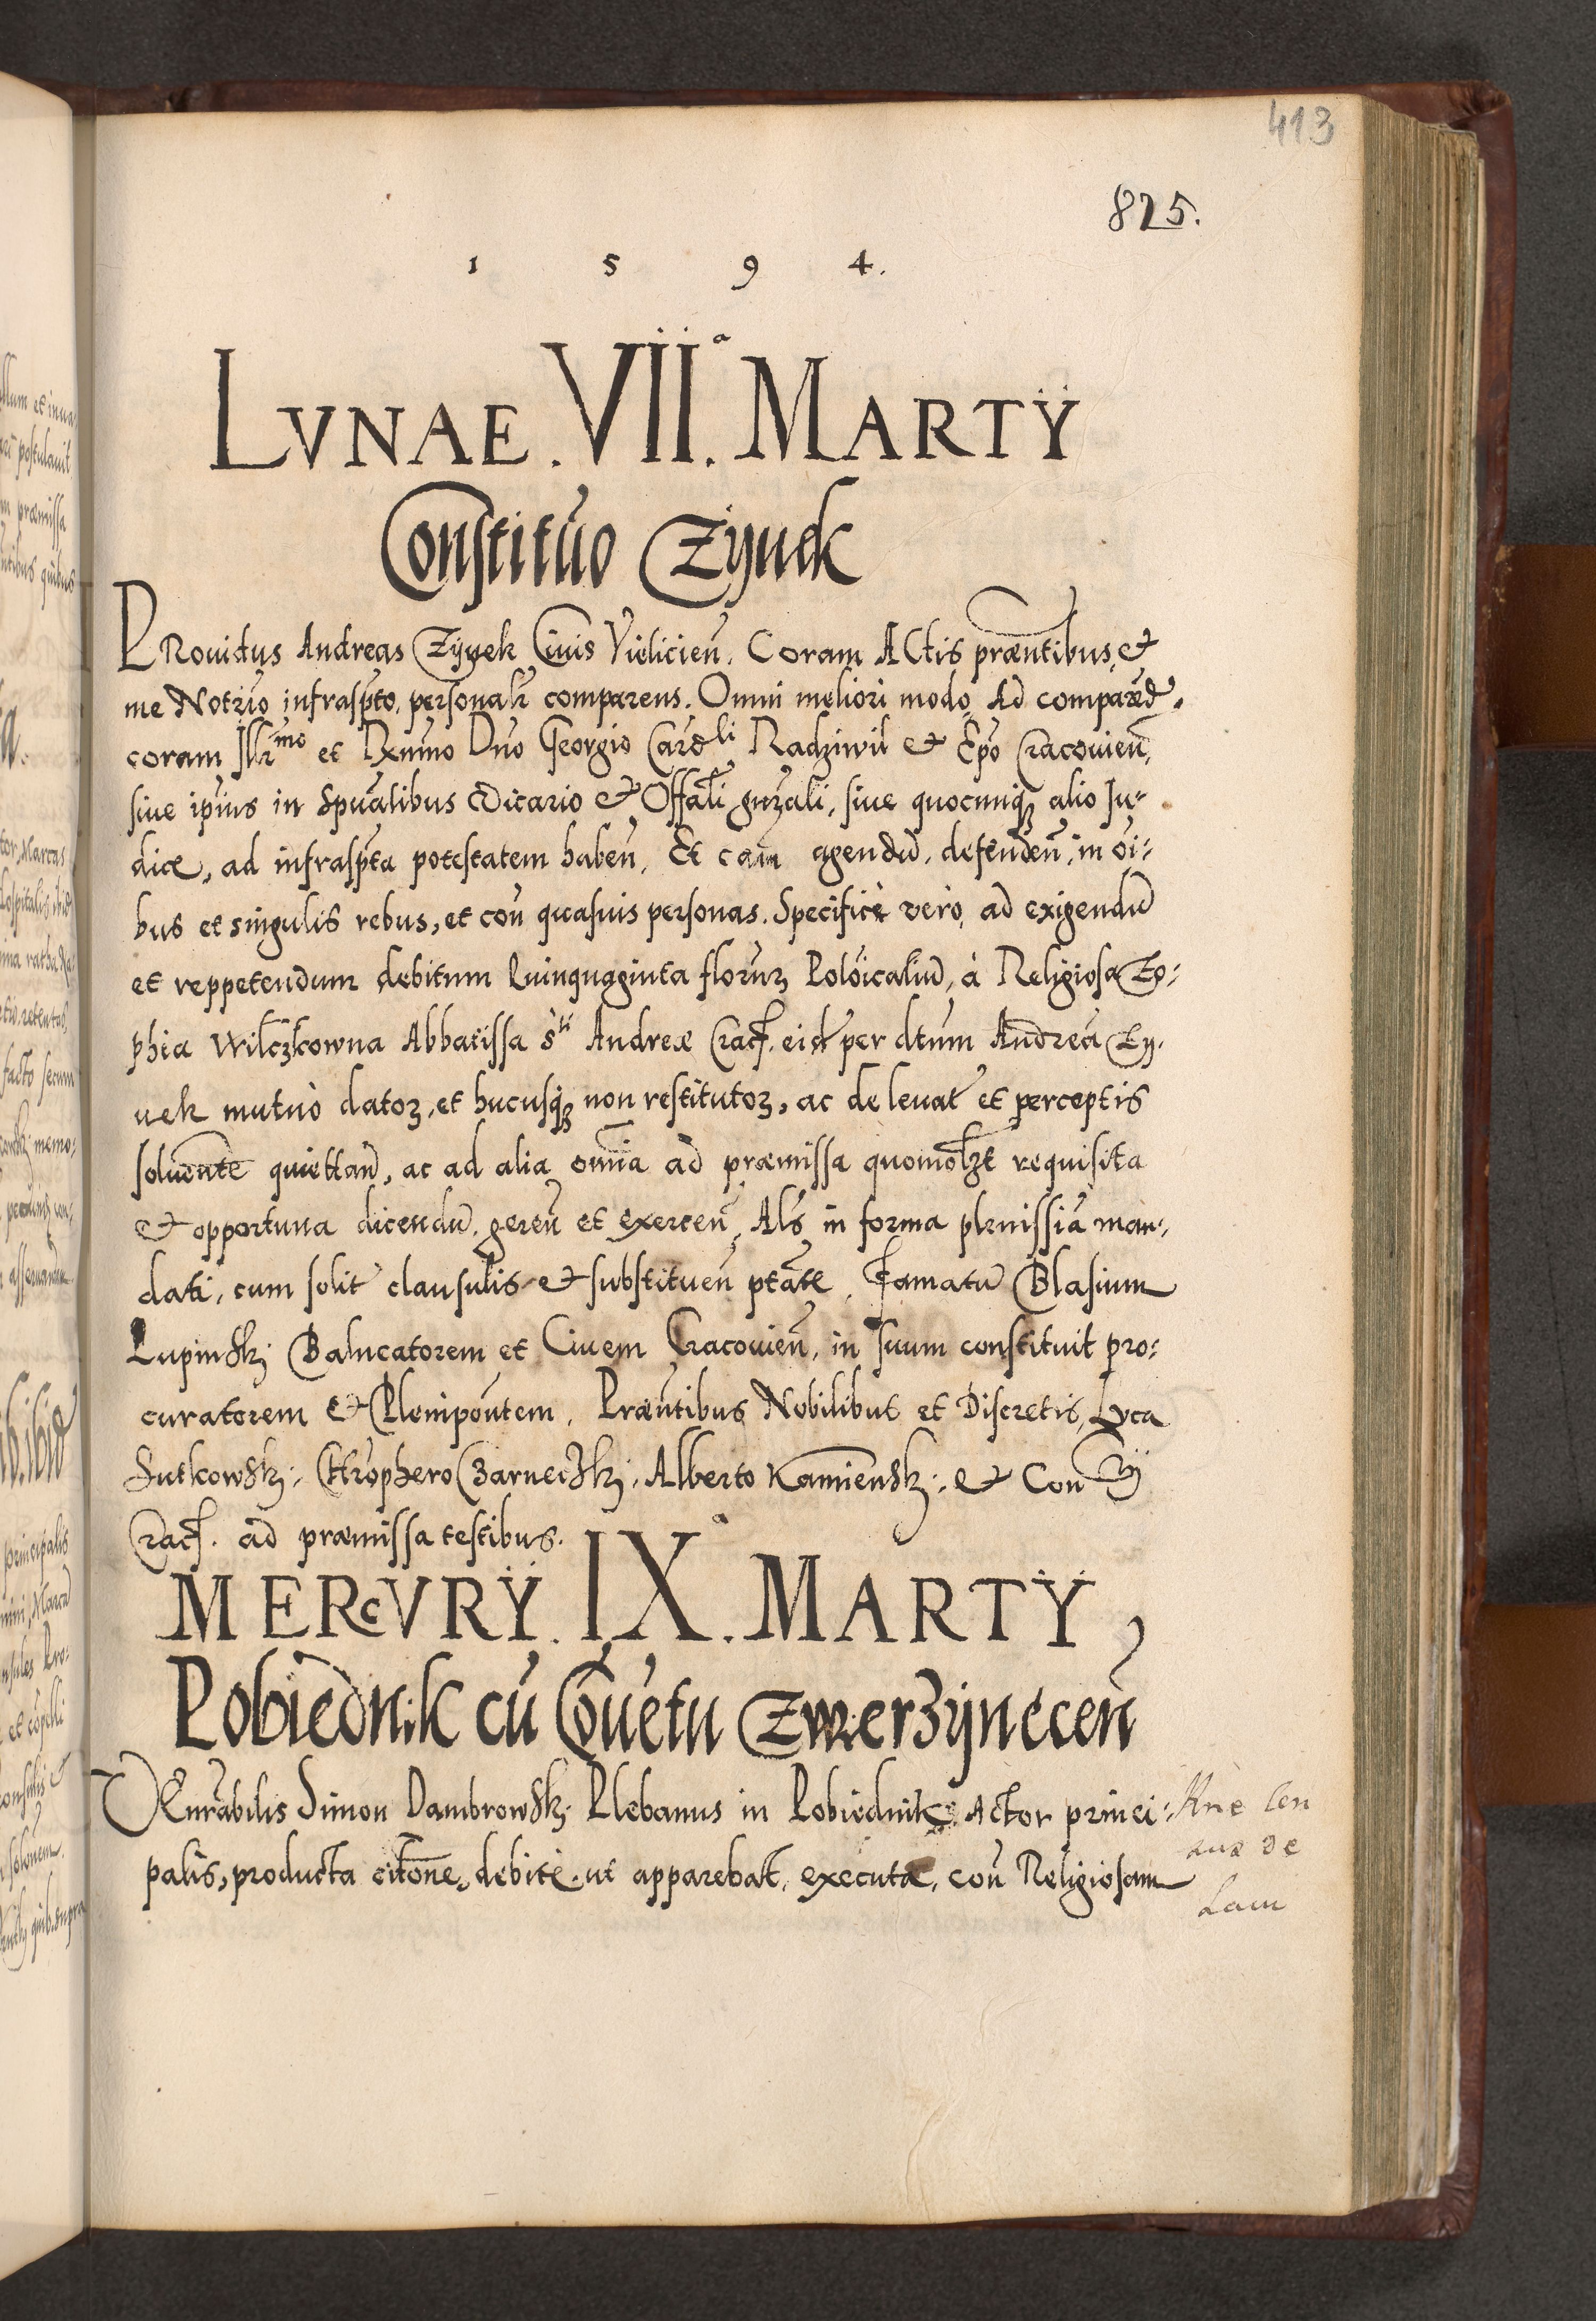 413
825.
1 5 9 4.
LVNAE. VIIª. MARTŸ
Constituo Zÿuek
PRouidus Andreas Zÿuek Ciuis Vielicień. Coram Actis præntibus, et
me Notrio infraspto, personalr comparens. Omni meliori modo, Ad comparēd.
coram Illrmo et Rxnmo Dno Georgio Cardli Radziwil et Epo Cracouień,
siue ipius in Spualibus Vicario et Offali gnrali, siue quocunq alio Ju-
dice, ad infraspta potestatem habeń. Et cam agendū, defendeń, in oi-
bus et singulis rebus, et coń quasuis personas. Specificè verò, ad exigendū
et reppetendum debitum Quinquaginta florurz Poloicaliū, à Religiosa Zo-
phia Wilczkowna Abbatissa Sti Andreæ Cracf. eid per dtum Andreā Zy-
uek mutuò datoz, et hucusq non restitutoz, ac de leuat et perceptis
soluente quiettand, ac ad alia omnia ad præmissa quomolzt requisita
et opportuna dicendū, gereń et exerceń, Als in forma plenissiā man-
dati, cum solit clausulis et substitueń ptate. Famatū Blasium
Lupinski Balneatorem et Ciuem Cracouień, in suum constituit pro-
curatorem et Plenipontem. Præntibus Nobilibus et Discretis, Luca
Sutkowski, Chrophero Czarneczki, Alberto Kamienski, et Con Rÿ
Cracf. ad præmissa testibus.
MERcVRŸ. IXª. MARTŸ
Pobiednik cū Conuetu Zwierzÿnecen
VEnrabilis Simon Dambrowski Plebanus in Pobiednik Actor princi-
palis, producta citone, debite ut apparebat, executa, coń Religiosam
Lam